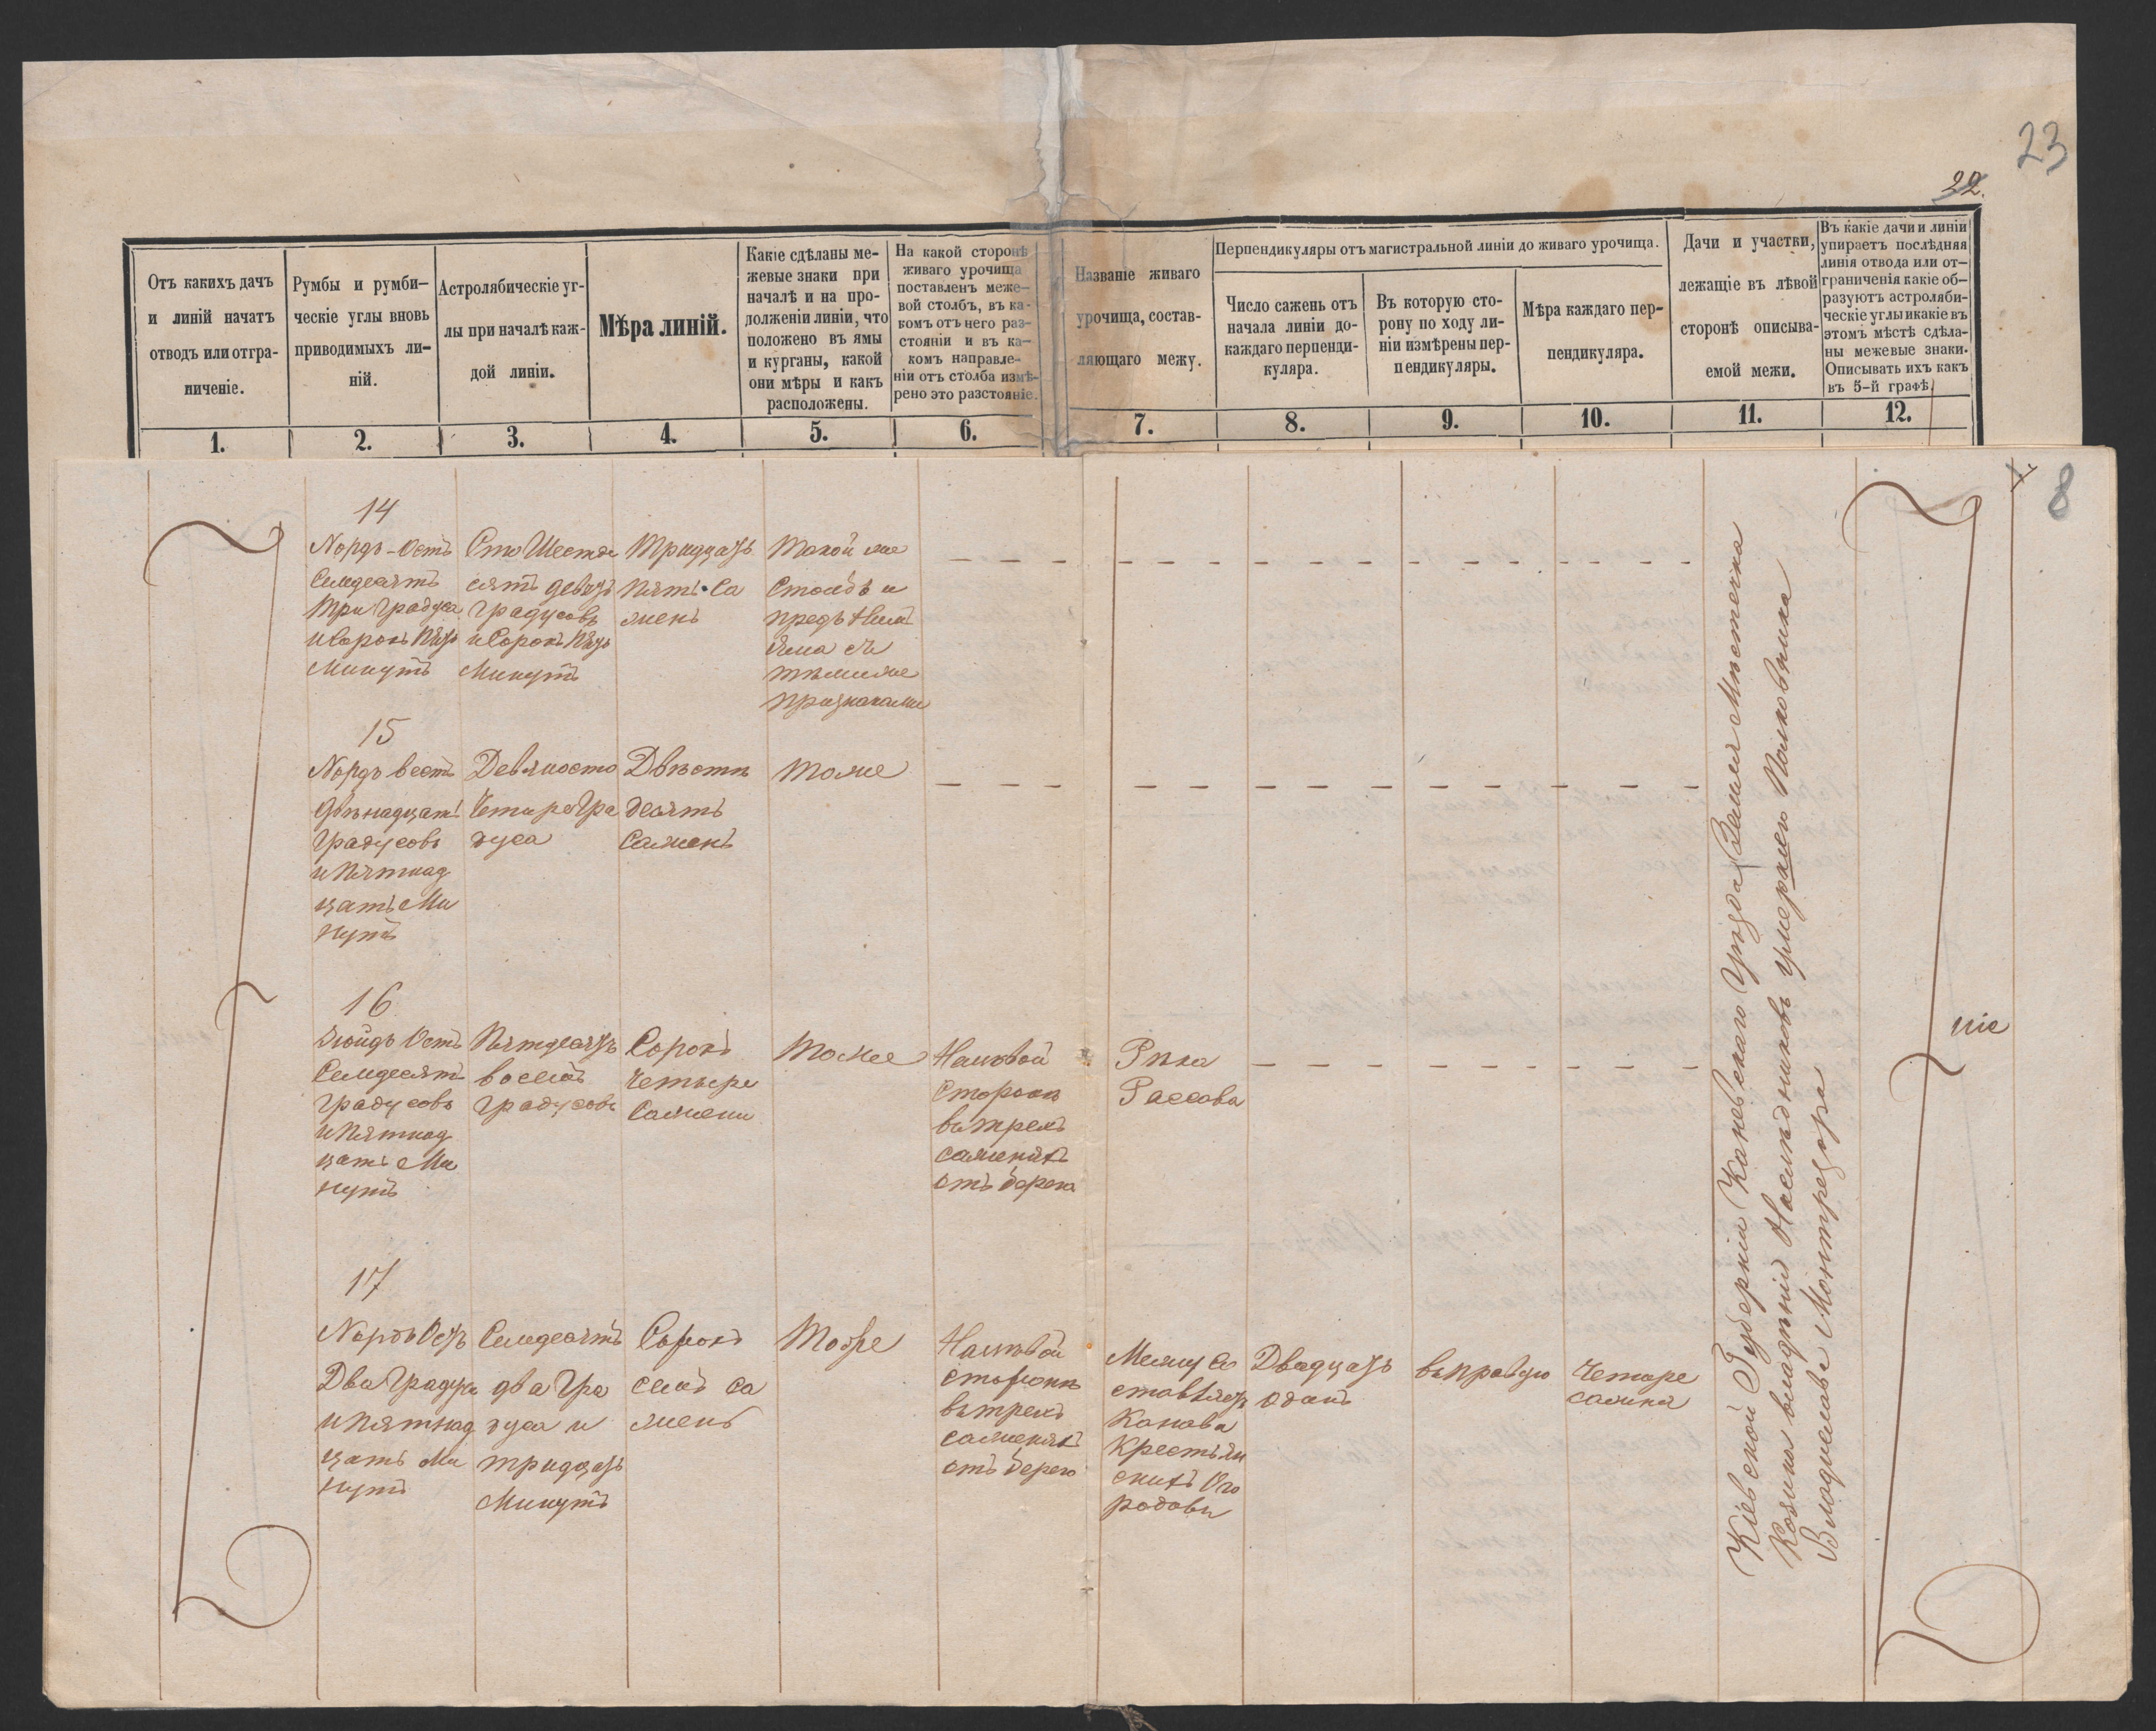 23
22.
Отъ какихъ дачъ
и линій начатъ
отводъ или отгра-
ниченіе.
Румбы и румби-
ческіе углы вновь
приводимыхъ ли-
ній.
Астролябическіе уг-
лы при началѣ каж-
дой линіи.
Мѣра линій.
Какіе сдѣланы ме-
жевые знаки при
началѣ и на про-
долженіи линіи, что
положено въ ямы
и курганы, какой
они мѣры и какъ
расположены.
На какой сторонѣ
живаго урочища
поставленъ меже-
вой столбъ, въ ка-
комъ отъ него раз-
стояніи и въ ка-
комъ направле-
ніи отъ столба измѣ-
рено это разстояніе.
Названіе живаго
урочища, состав-
ляющаго межу.
Перпендикуляры отъ магистральной линіи до живаго урочища.
Число сажень отъ
начала линіи до-
каждаго перпенди-
куляра.
Въ которую сто-
рону по ходу ли-
ніи измѣрены пер-
пендикуляры.
Мѣра каждаго пер-
пендикуляра.
Дачи и участки,
лежащіе въ лѣвой
сторонѣ описыва-
емой межи.
Въ какіе дачи и линіи
упираетъ послѣдняя
линія отвода или от-
граниченія какіе об-
разуютъ астроляби-
ческіе углы и какіе въ
этомъ мѣстѣ сдѣла-
ны межевые знаки.
Описывать ихъ какъ
въ 5-й графѣ.
1. 2. 3. 4. 5. 6. 7. 8. 9. 10. 11. 12.
8
14
Nордъ-Остъ
Семдесятъ
три градуса
и Сорокъ Пять
Минутъ
Сто Шестде
сятъ девять
градусовъ
и Сорокъ Пять
Минутъ
Тридцать
Пять Са
женъ
Такой же
Столбъ и
предъ Нимъ
яма съ
тѣмиже
признаками
15
Nордъ вестъ
двѣнадцать
градусовъ
и Пятнад
цать Ми
нутъ
Девяносто
Четыре Гра
дуса
Двѣсти
десять
Саженъ
Тоже
16
Зюйдъ Остъ
Семдесятъ
градусовъ
и Пятнад
цать Ми
нутъ
Пятдесятъ
восемь
градусовъ
Сорокъ
Четыре
Сажени
Тоже
На лѣвой
Сторонѣ
въ трехъ
саженяхъ
отъ берега
Рѣка
Рассава
17
Nордъ Остъ
Два градуса
и Пятнад
цать Ми
нутъ
Семдесятъ
два Гра
дуса и
тридцать
Минутъ
Сорокъ
семь са
женъ
Тоже
На лѣвой
сторонѣ
въ трехъ
саженяхъ
отъ берега
Межу со
ставляетъ
Канава
Крестьян
скихъ Ого
родовъ
Двадцать
одинъ
въ правую
Четыре
сажня
Кіевской Губерніи Каневскаго Уѣзда Земля Мѣстечка
Козина владѣнія Наслѣдниковъ умершаго Полковника
Владислава Монтрезора
ніе